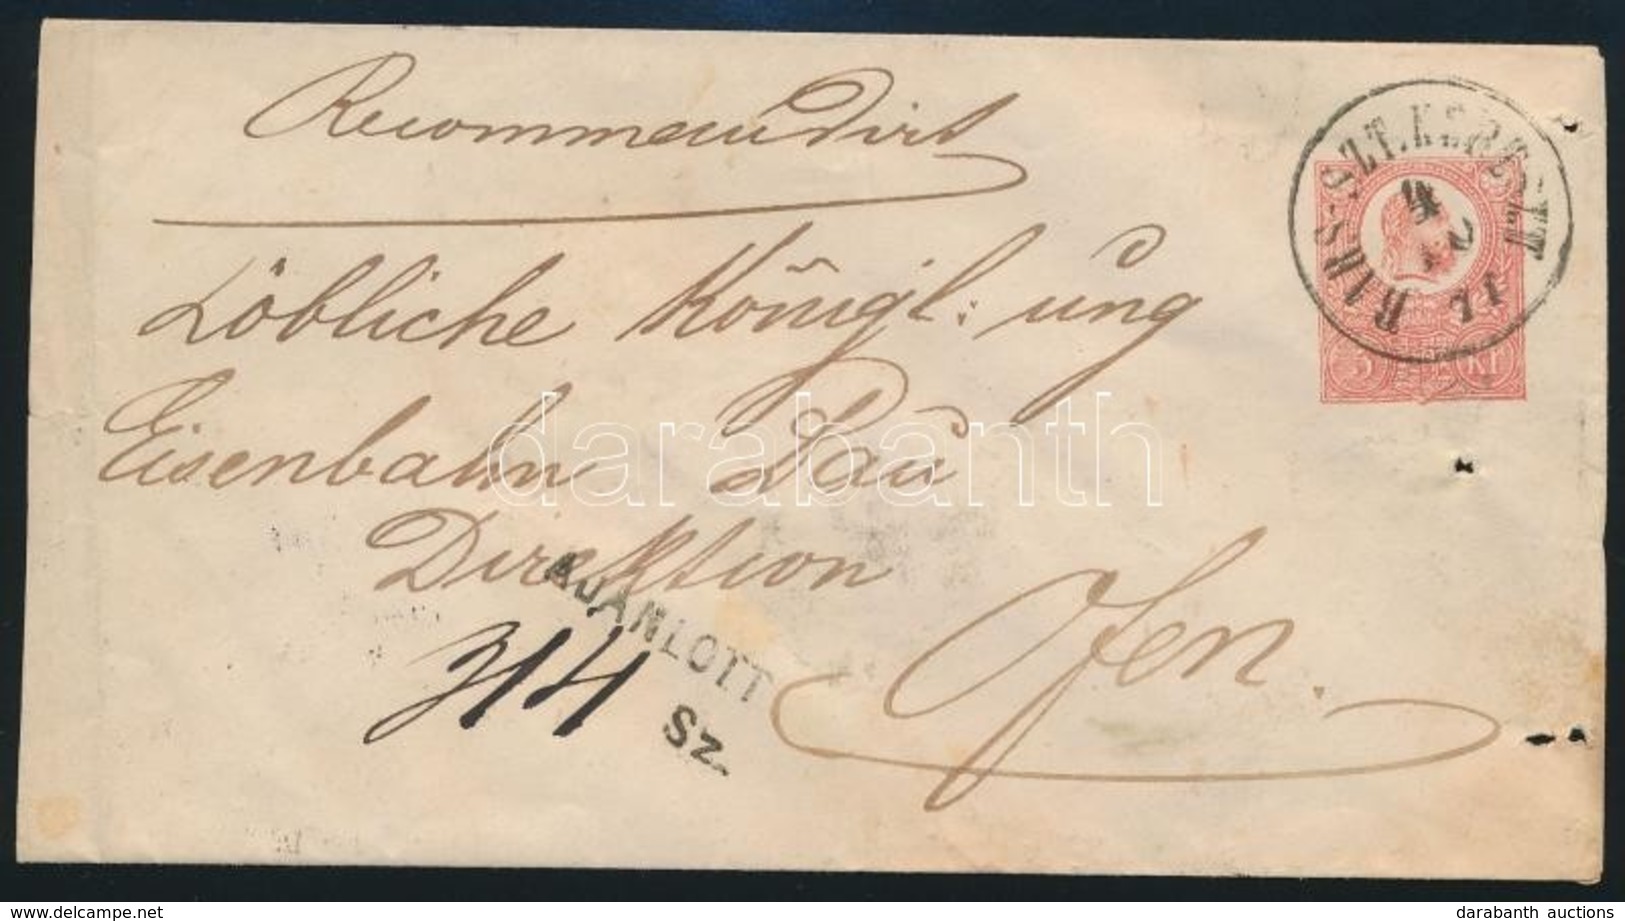 Recommandirt
Löbliche Königl: ung
Eisenbahn Bau
Direktion
Ofen.
314
AJÁNLOTT
SZ.
BARS-SZT.KERESZT
5 KR
darabanth
delcampe.net
darabanth auctions